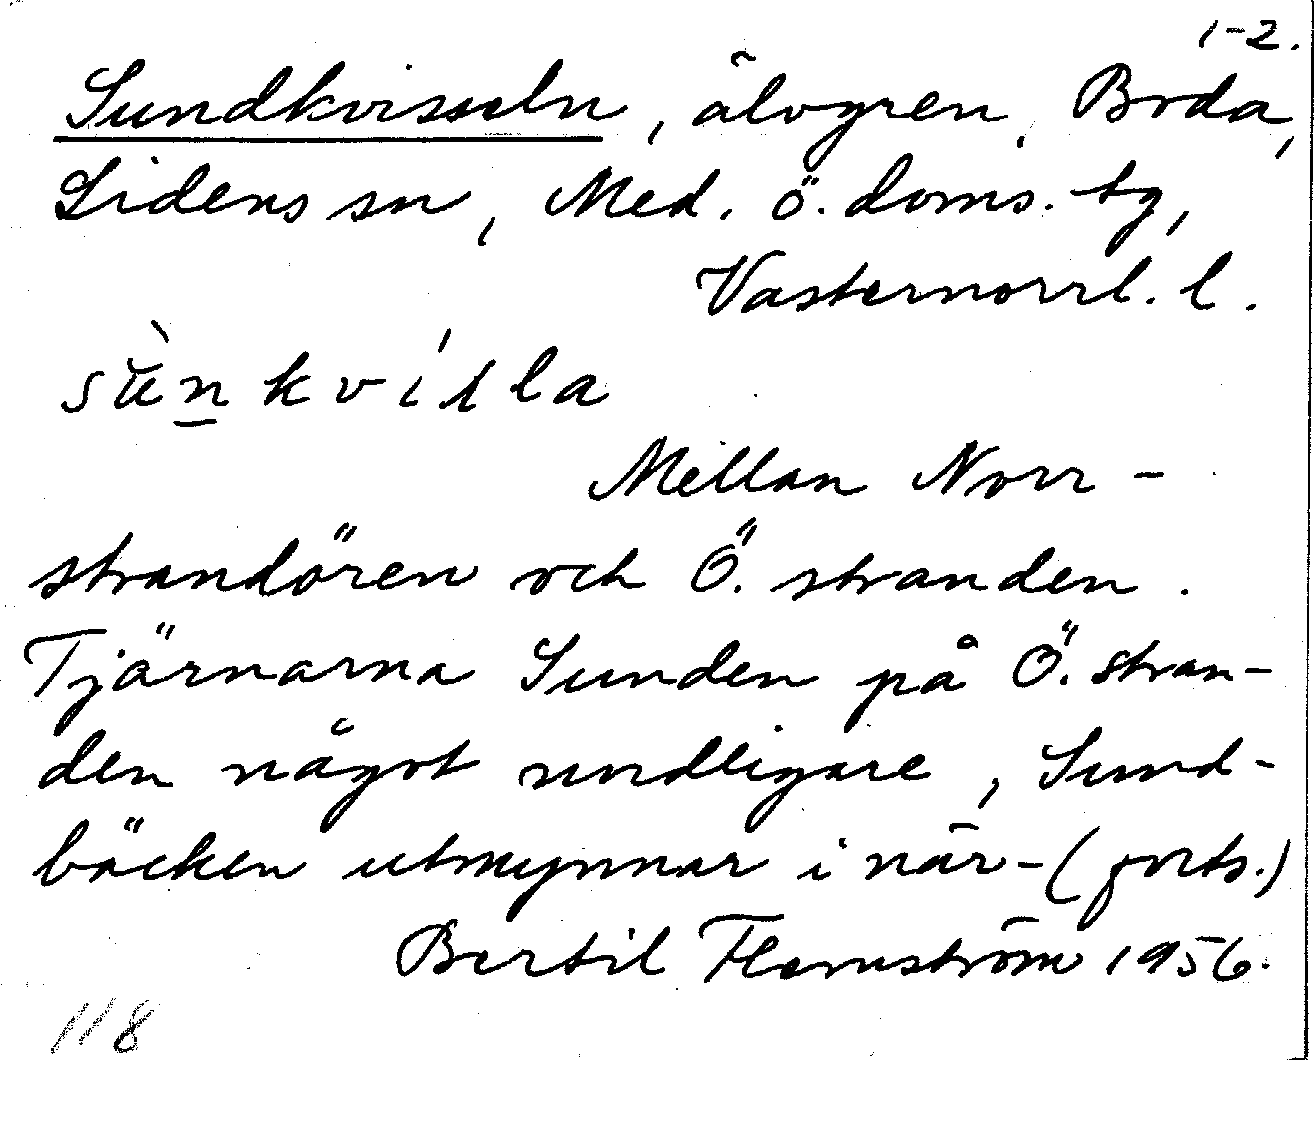 1-2.
Sundkvisseln, älvgren, Boda,
Lidens sn, Med. ö. doms. tg,
Västernorrl. l.
sùn kvísla
Mellan Norr-
strandören och Ö. stranden.
Tjärnarna Sunden på Ö. stran-
den något sundligare, Sund-
bäcken utmynnar i när- (forts.)
Bertil Flemström 1956.
118